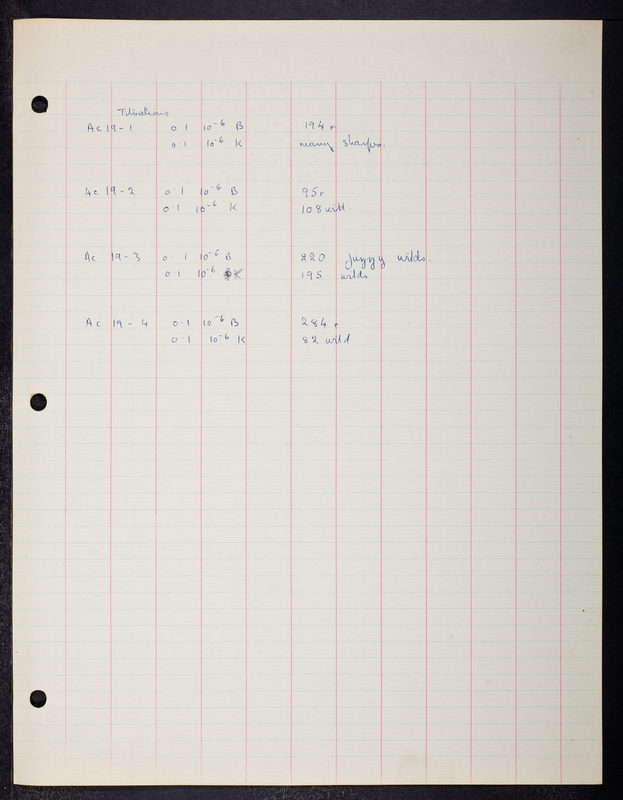 Titrations
Ac 19-1 0.1 10⁻⁶ B 194 r
0.1 10⁻⁶ K many sharps.
Ac 19-2 0.1 10⁻⁶ B 95 r
0.1 10⁻⁶ K 108 wild.
Ac 19-3 0.1 10⁻⁶ B 220 fuzzy wilds.
0.1 10⁻⁶ K 195 wilds.
Ac 19-4 0.1 10⁻⁶ B 284 r
0.1 10⁻⁶ K 82 wild